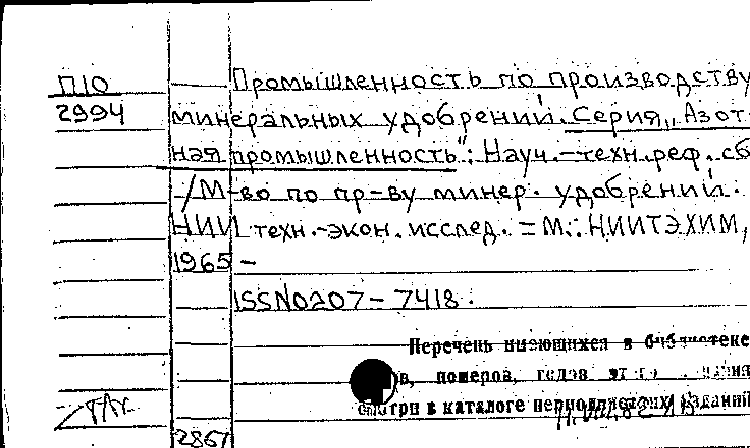 П10
2994
Промышленность по производству
минеральных удобрений. Серия „Азот
ная промышленность": Науч.-техн.реф. сб
/М-во по пр-ву минер. удобрений.
НИИ техн.-экон. исслед. = М.: НИИТЭХИМ,
1965 -
ISSN0207-7418.
Перечень имеющихся в библиотеке
номеров, годов
смотри в каталоге периодических изданий
2867